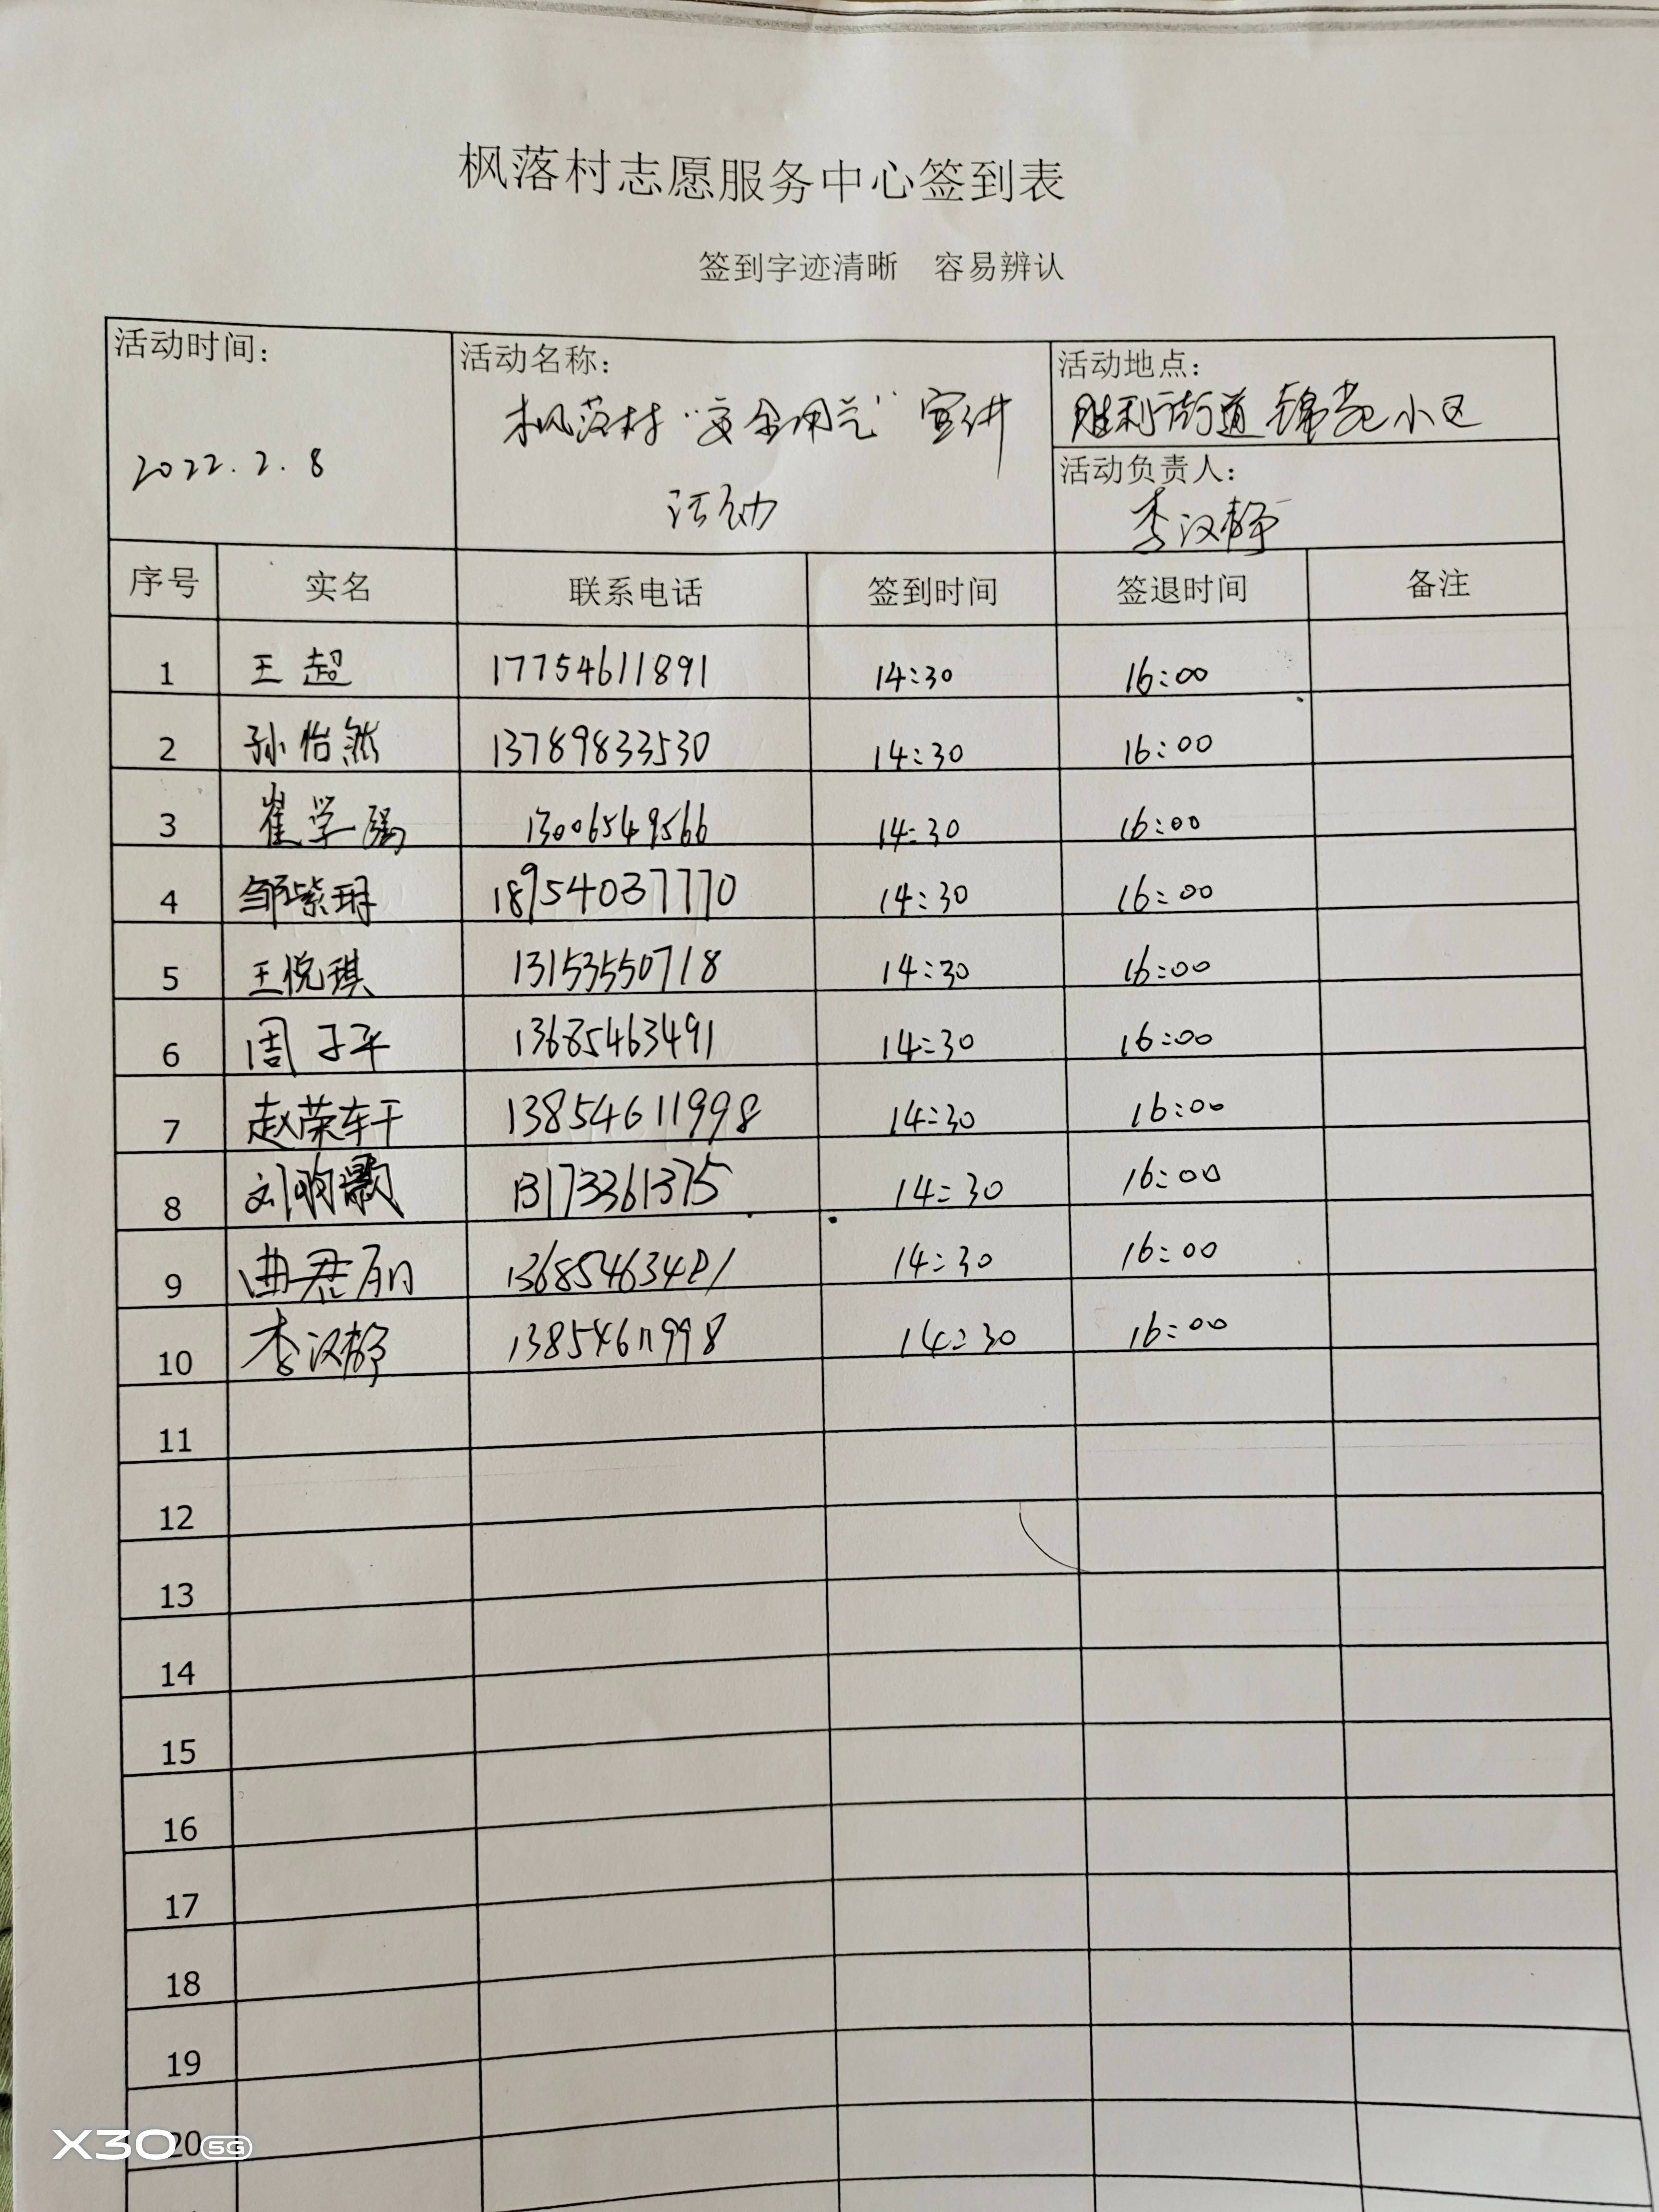 枫落村志愿服务中心签到表
签到字迹清晰 容易辨认
活动时间： 活动名称： 活动地点：
枫落村“安全用气”宣讲 胜利街道锦苑小区
2022.2.8 活动负责人：
活动 李汉静
序号 实名 联系电话 签到时间 签退时间 备注
1 王超 17754611891 14:30 16:00
2 孙怡然 13789833530 14:30 16:00
3 崔学强 13006549566 14:30 16:00
4 邹紫玥 18954037770 14:30 16:00
5 王悦琪 13153550718 14:30 16:00
6 周子平 13685463491 14:30 16:00
7 赵荣轩 13854611998 14:30 16:00
8 刘 13173361375 14:30 16:00
9 曲君丽 14:30 16:00
10 李汉静 13854611998 14:30 16:00
11
12
13
14
15
16
17
18
19
20
X30 5G